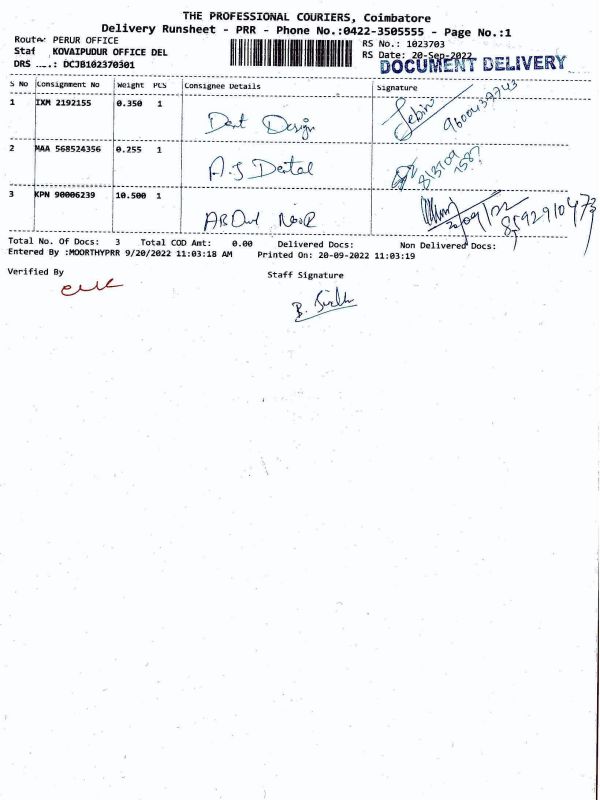 THE PROFESSIONAL COURIERS, Coimbatore
Delivery Runsheet - PRR - Phone No.:0422-3505555 - Page No.:1
Route: PERUR OFFICE
RS No.: 1023703
Staf KOVAIPUDUR OFFICE DEL
RS Date: 20-Sep-2022
DRS ...: DCJB102370301
DOCUMENT DELIVERY
S No Consignment No Weight PCS Consignee Details Signature
1 IXM 2192155 0.350 1
Dent Design
Jebin
2 MAA 568524356 0.255 1
A.J Dental
3 KPN 90006239 10.500 1
ABDul NooR
20/09/22
8592910473
Total No. Of Docs: 3 Total COD Amt: 0.00 Delivered Docs: Non Delivered Docs:
Entered By :MOORTHYPRR 9/20/2022 11:03:18 AM Printed On: 20-09-2022 11:03:19
Verified By Staff Signature